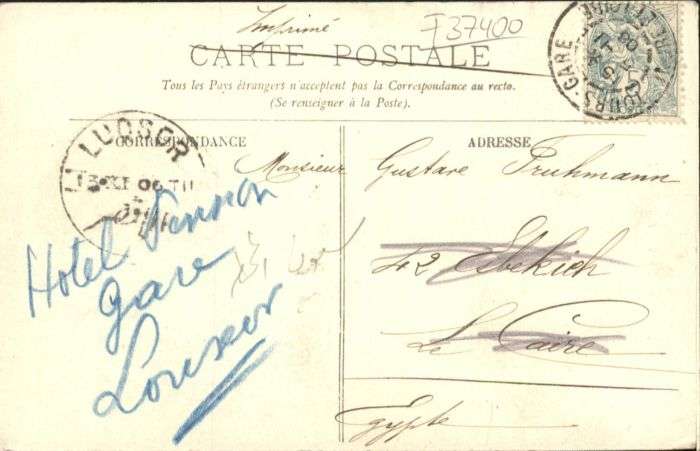 Imprimé
F37400
CARTE POSTALE
Tous les Pays étrangers n'acceptent pas la Correspondance au recto.
(Se renseigner à la Poste).
TOURS-GARE
CORRESPONDANCE
ADRESSE
LUQSOR
XI 06
Monsieur Gustave Pruhmann
42 Esbekieh
Le Caire
Egypte
Hotel Pension
Gare
Louxor